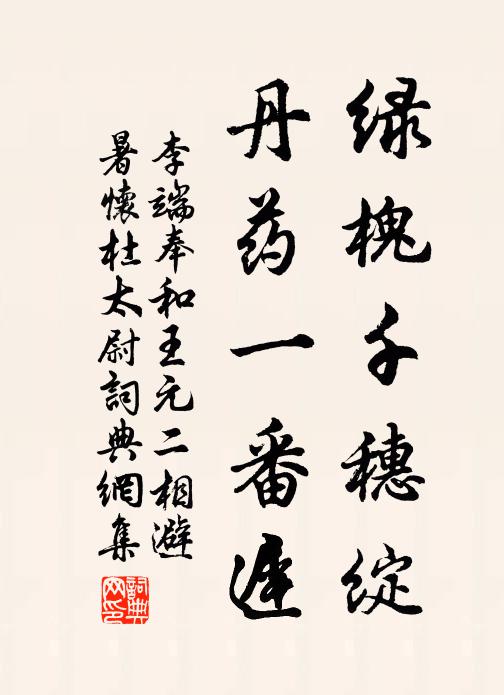 绿槐千穗绽
丹药一番迟
李端奉和王元二相避
暑懷杜太尉詞典網集
詞典
网印